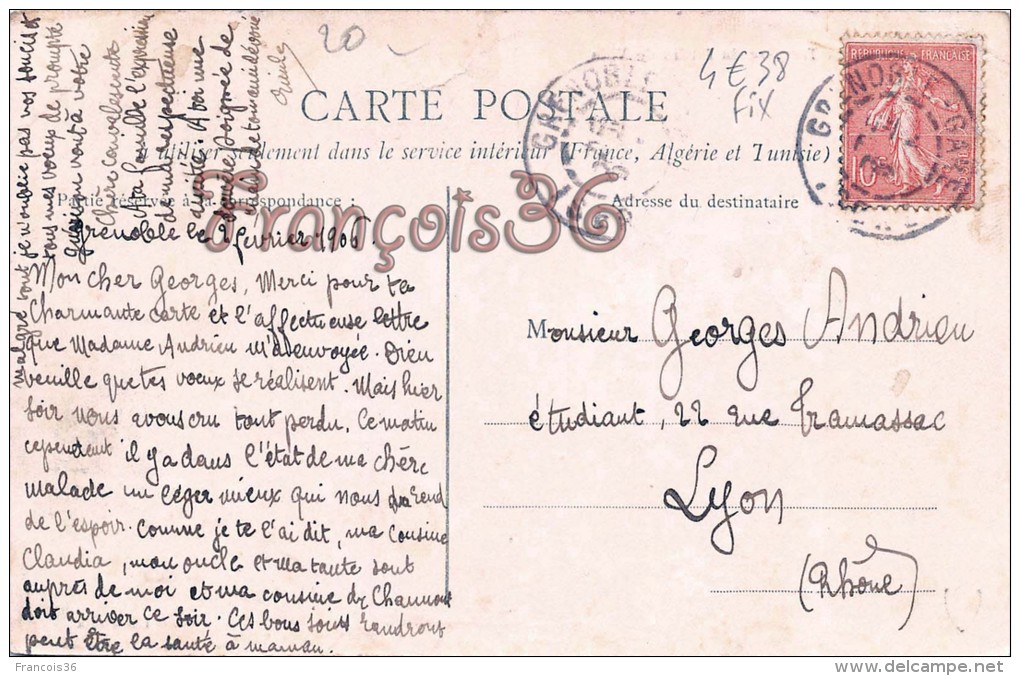 20
4€38
Fix
CARTE POSTALE
à utiliser seulement dans le service intérieur (France, Algérie et Tunisie)
Partie réservée à la correspondance :
Adresse du destinataire
REPUBLIQUE FRANÇAISE
10c
GRENOBLE
GRENOBLE GARE
François36
Grenoble le 2 février 1906.
Mon cher Georges, Merci pour ta
charmante carte et l'affectueuse lettre
que Madame Andrieu m'a envoyée. Dieu
veuille que tes voeux se réalisent. Mais hier
soir nous avons cru tout perdu. Ce matin
cependant il y a dans l'état de ma chère
malade un léger mieux qui nous rend
de l'espoir. Comme je te l'ai dit, ma cousine
Claudia, mon oncle et ma tante sont
auprès de moi et ma cousine de Chaumont
doit arriver ce soir. Ces bons soins rendront
peut être la santé à maman.
malgré tout je n'oublie pas vos soucis et
tous mes voeux de prompte
guérison vont à votre
chère convalescente
à ta famille l'expression
de ma respectueuse
amitié. A toi une
poignée de
main de ton ami dévoué
Monsieur Georges Andrieu
étudiant, 22 rue Tramassac
Lyon
(Rhône)
Francois36
delcampe.net